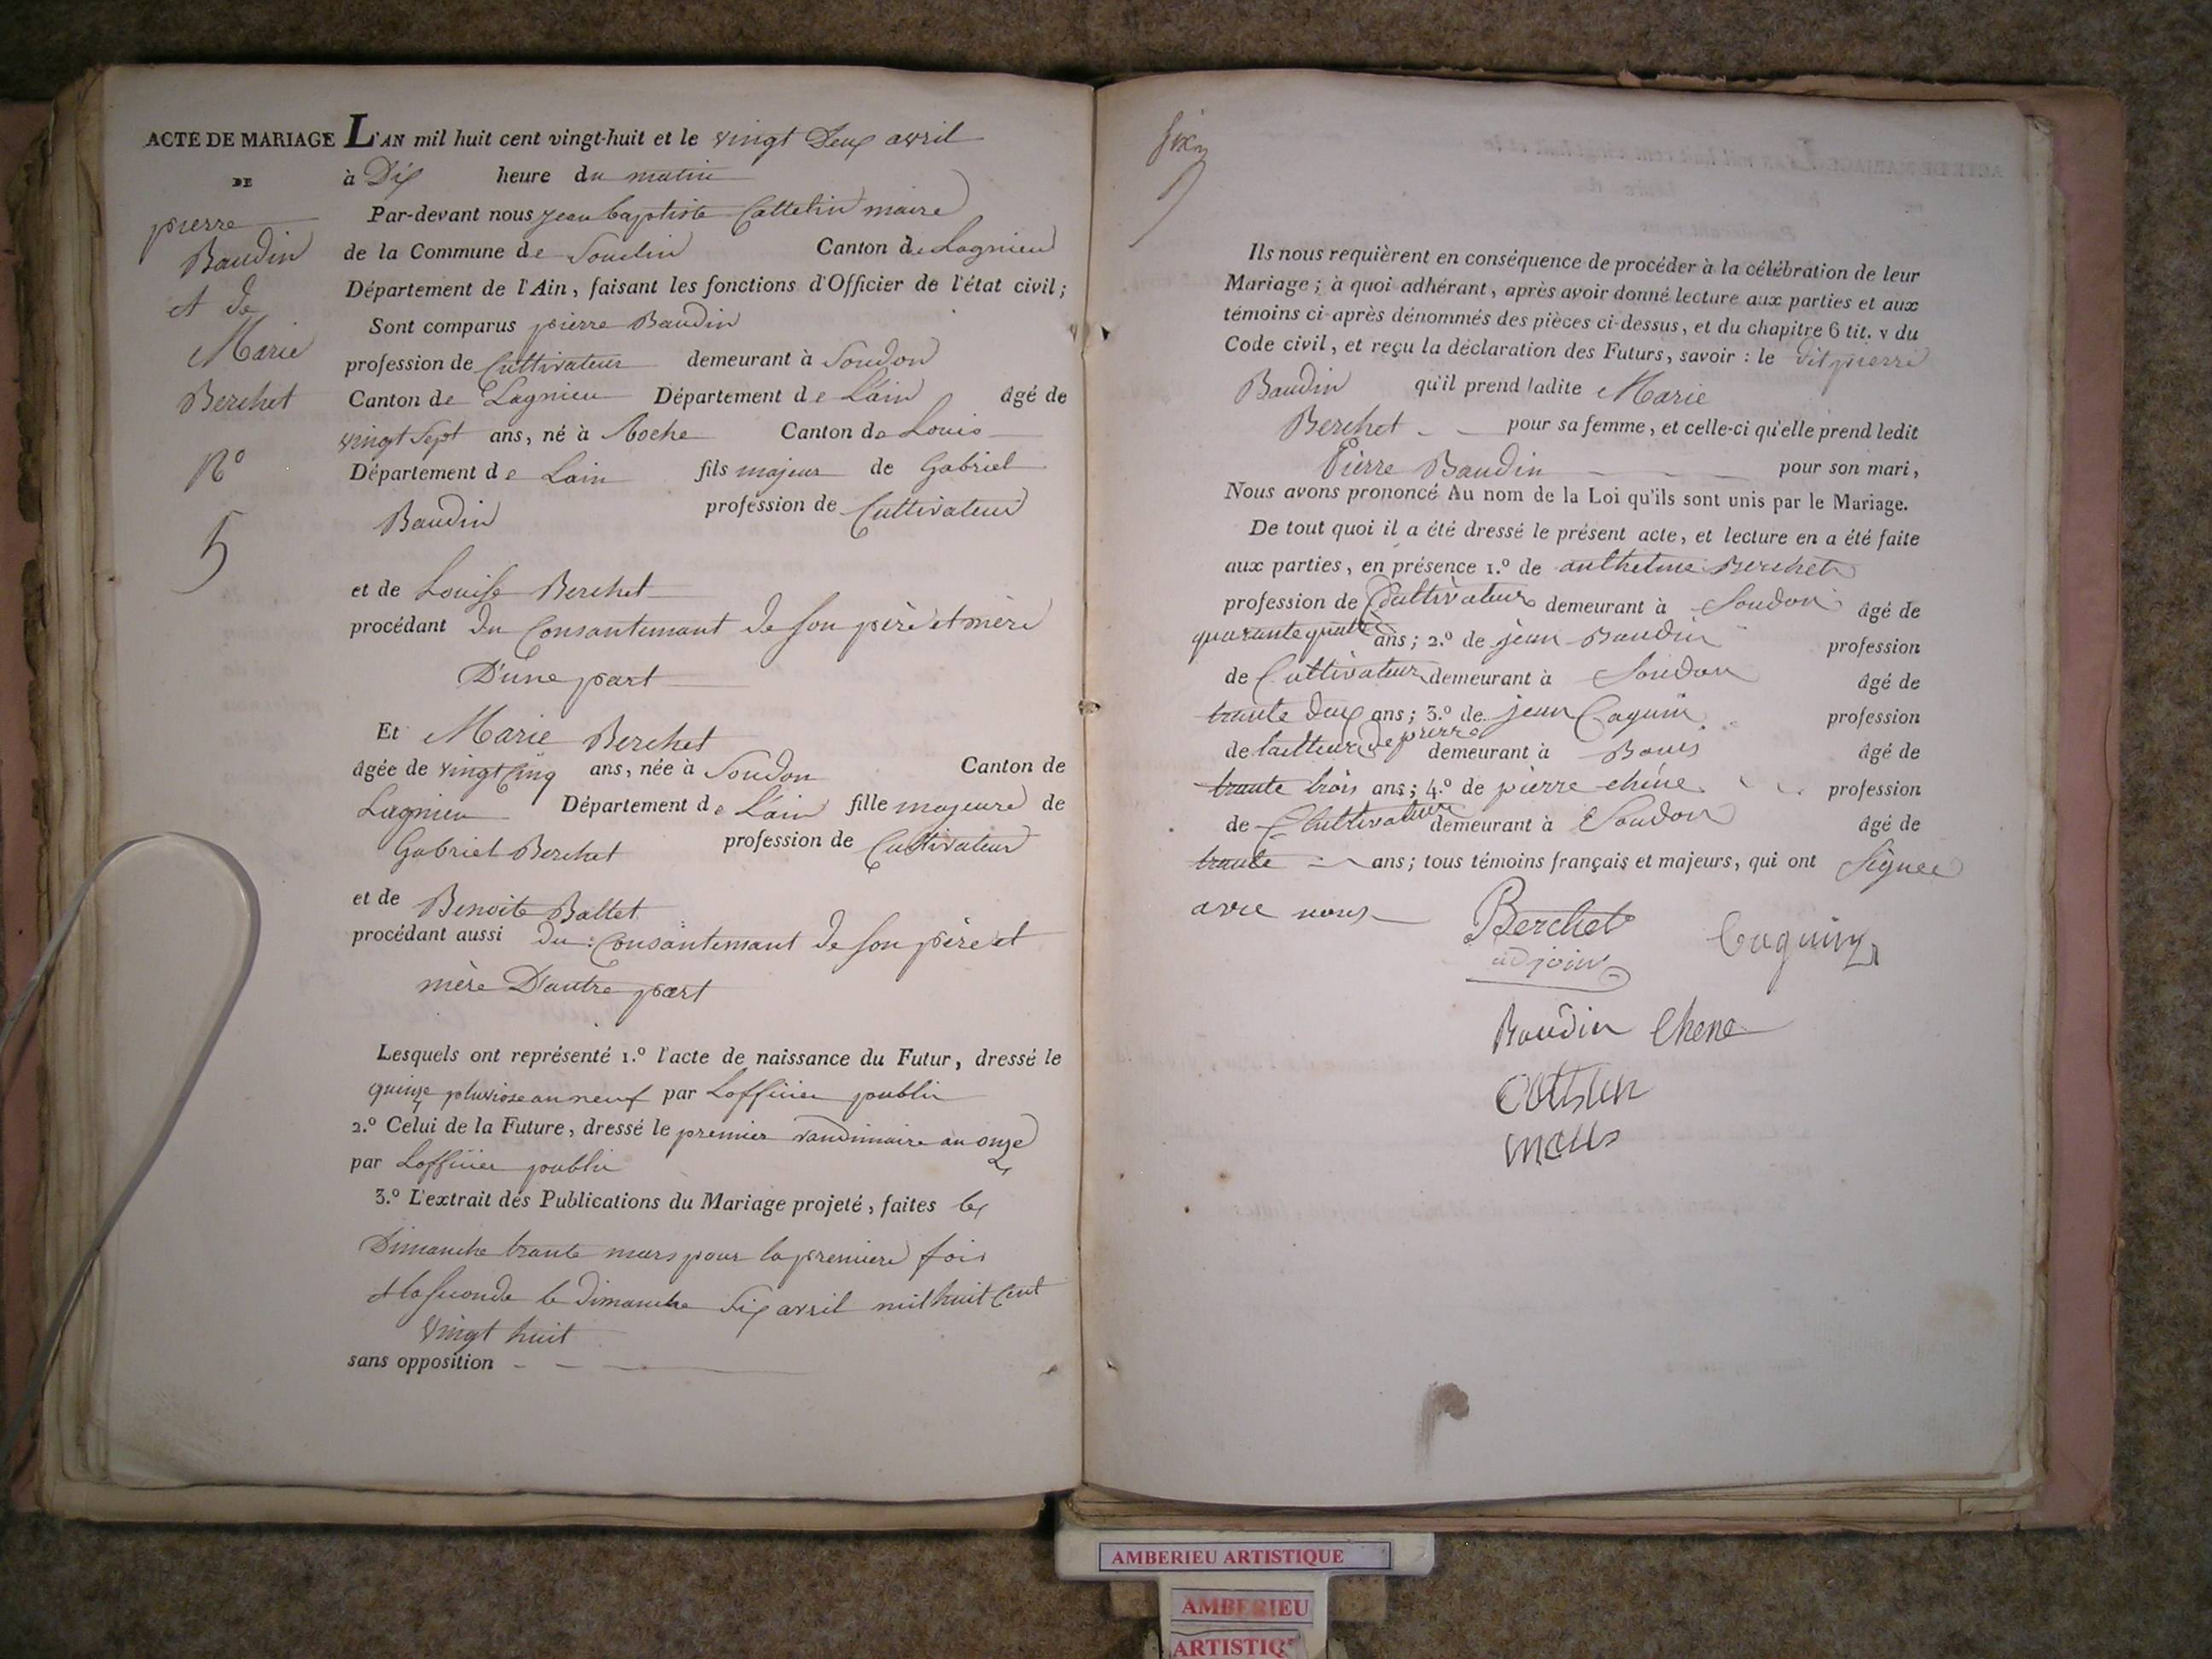 ACTE DE MARIAGE
DE
pierre
Baudin
et de
Marie
Berchet
N°
5
L'AN mil huit cent vingt-huit et le vingt Deux avril
à Dix heure du matin
Par-devant nous jean baptiste Cattelin maire
de la Commune de Soudin Canton de Lagnieu
Département de l'Ain, faisant les fonctions d'Officier de l'état civil;
Sont comparus pierre Baudin
profession de Cultivateur demeurant à Soudon
Canton de Lagnieu Département de L'ain âgé de
vingt Sept ans, né à Canton de Louis
Département de Lain fils majeur de Gabriel
Baudin profession de Cultivateur
et de Louise Berchet
procédant du Consantemant de son père et mère
D'une part
Et Marie Berchet
âgée de vingt Cinq ans, née à Soudon Canton de
Lagnieu Département de L'ain fille majeure de
Gabriel Berchet profession de Cultivateur
et de Benoite Ballet
procédant aussi du Consantemant de son père et
mère D'autre part
Lesquels ont représenté 1.° l'acte de naissance du Futur, dressé le
quinze pluviose an neuf par Lofficier public
2.° Celui de la Future, dressé le premier vandimaire an onze
par Lofficier public
3.° L'extrait des Publications du Mariage projeté, faites les
Dimanche trante mars pour la premiere fois
et la seconde le Dimanche Six avril mil huit Cent
vingt huit
sans opposition
six
Ils nous requièrent en conséquence de procéder à la célébration de leur
Mariage; à quoi adhérant, après avoir donné lecture aux parties et aux
témoins ci-après dénommés des pièces ci-dessus, et du chapitre 6 tit. v du
Code civil, et reçu la déclaration des Futurs, savoir : le dit pierre
Baudin qu'il prend ladite Marie
Berchet pour sa femme, et celle-ci qu'elle prend ledit
Pierre Baudin pour son mari,
Nous avons prononcé Au nom de la Loi qu'ils sont unis par le Mariage.
De tout quoi il a été dressé le présent acte, et lecture en a été faite
aux parties, en présence 1.° de anthelme Berchet
profession de Cultivateur demeurant à Soudon âgé de
quarante quatre ans; 2.° de jean Baudin profession
de Cultivateur demeurant à Soudon âgé de
trante deux ans; 3.° de jean Caguin profession
de tailleur de pierre demeurant à Bouis âgé de
trante trois ans; 4.° de pierre chéne profession
de Cultivateur demeurant à Soudon âgé de
trante ans; tous témoins français et majeurs, qui ont Signee
avec nous
Berchet
adjoin
Caguin
Baudin Chene
Cottslen
AMBERIEU ARTISTIQUE
AMBERIEU